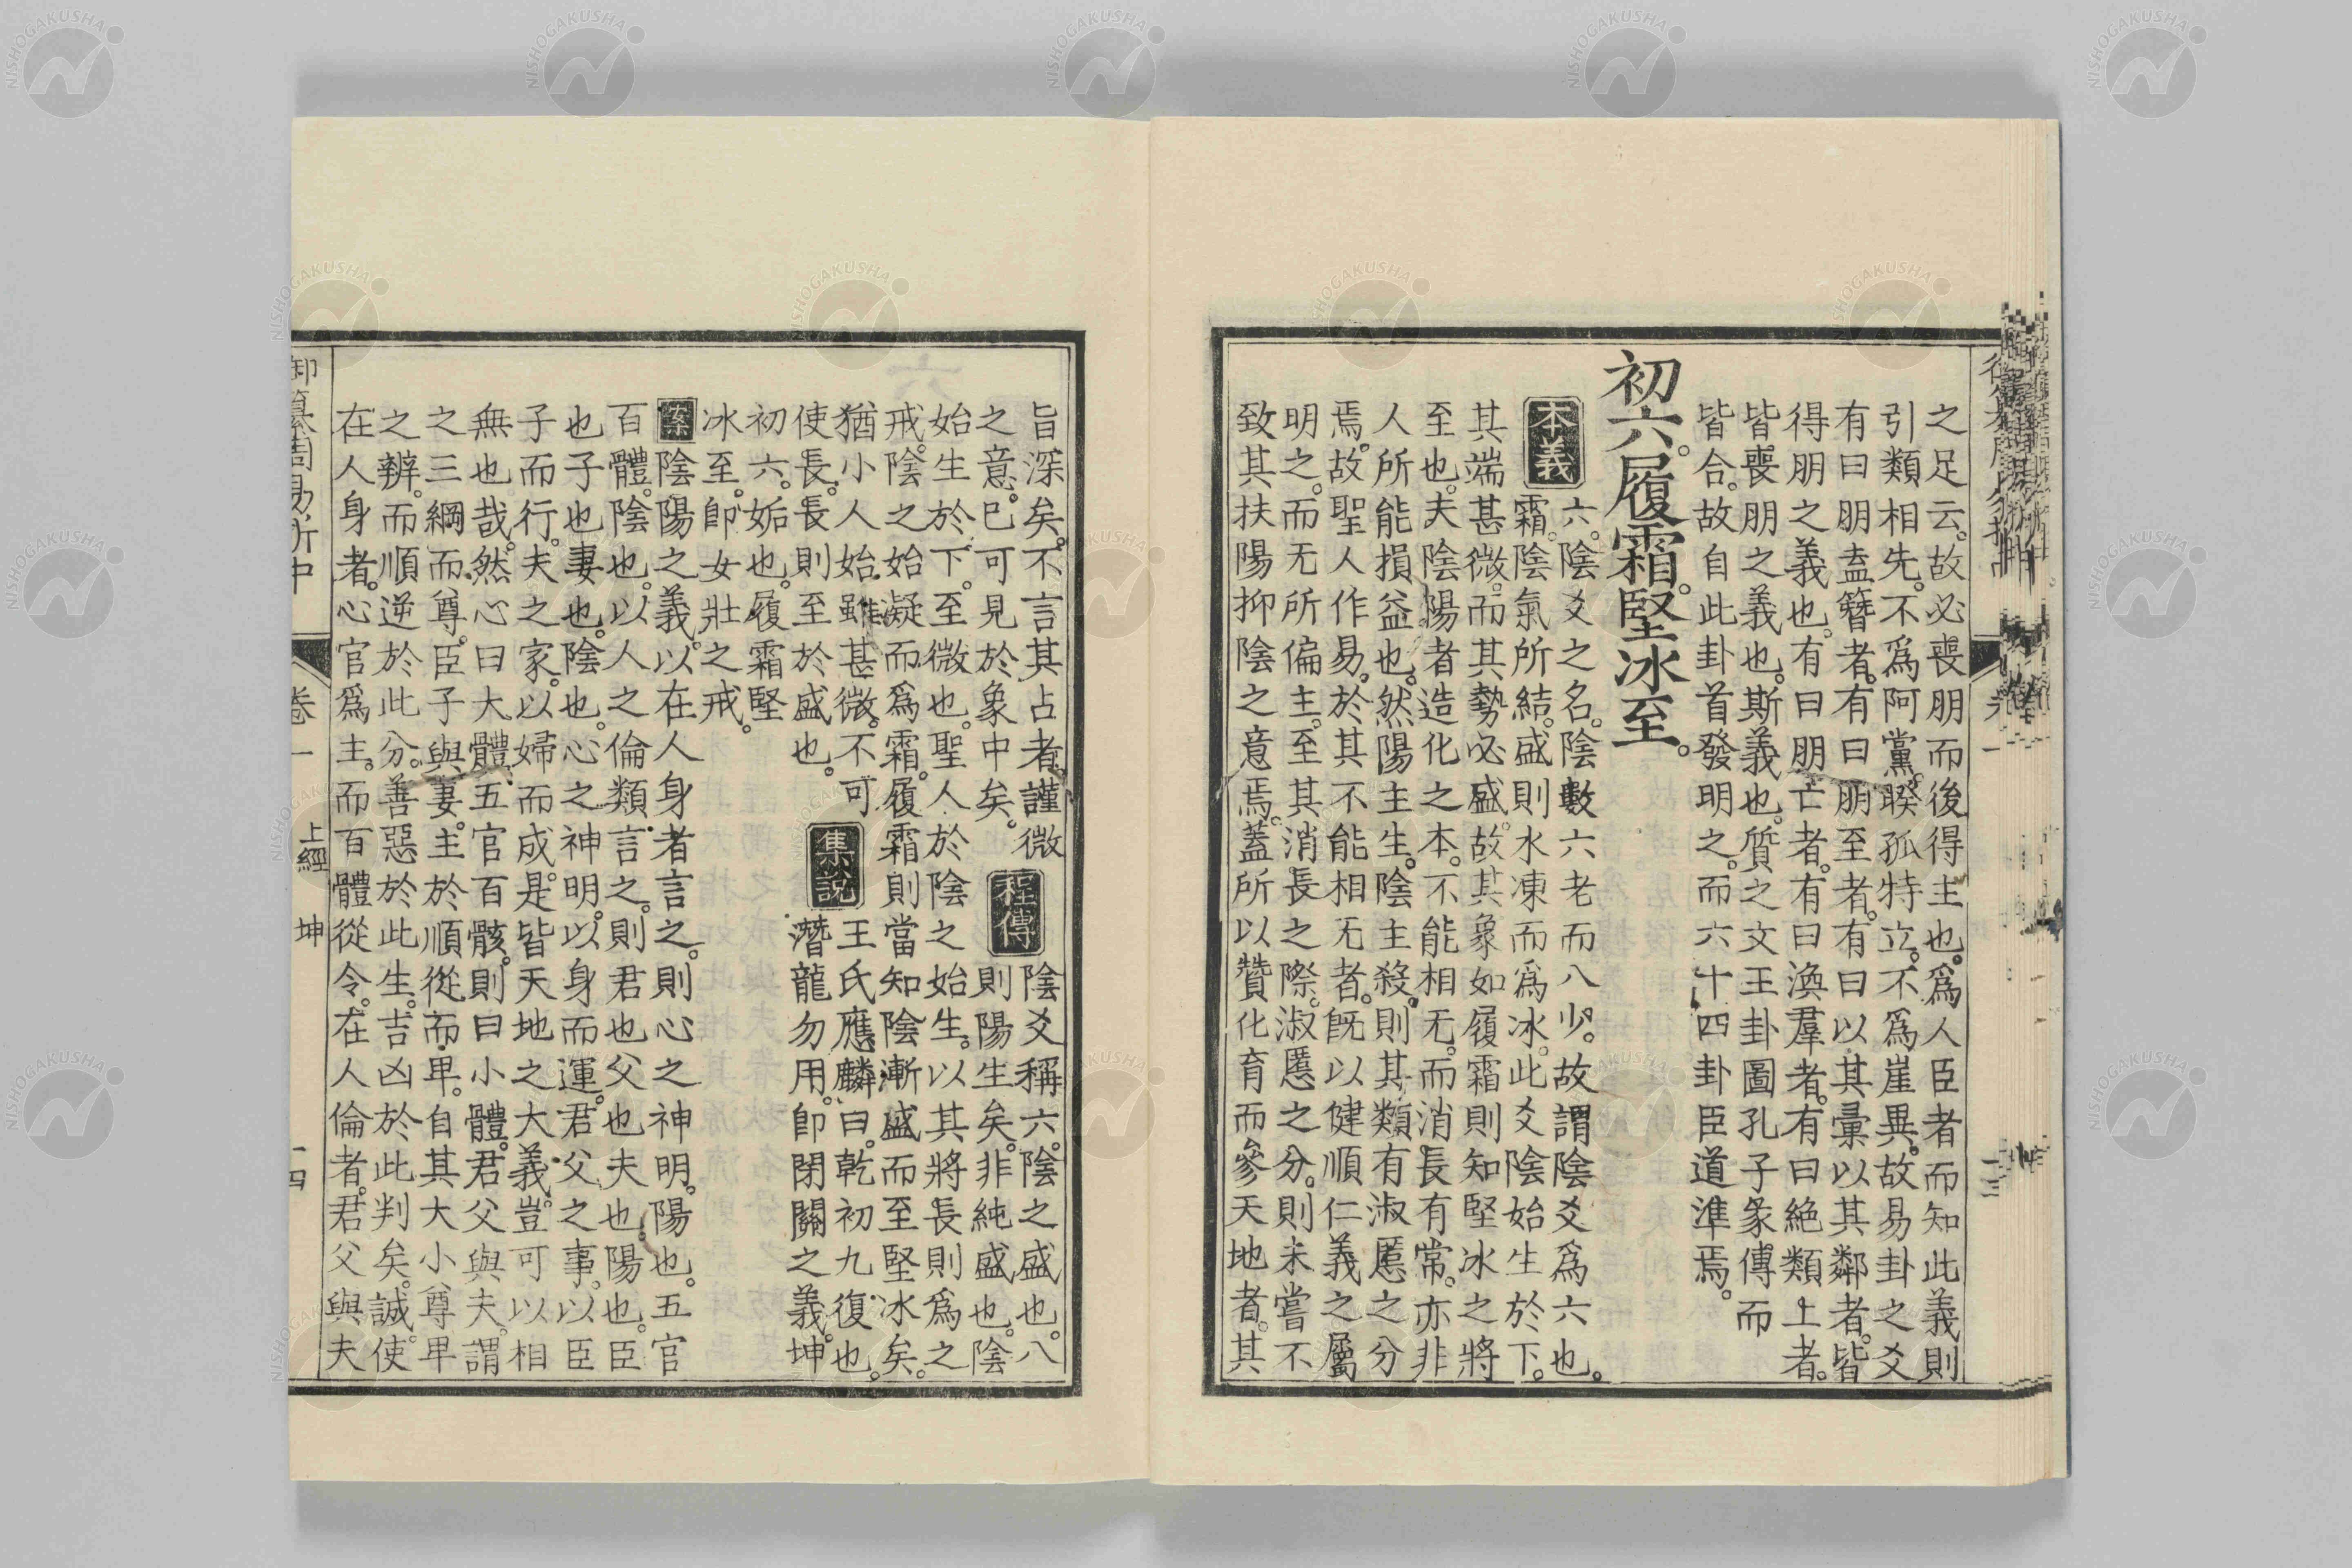 之足云。故必喪朋而後得主也。爲人臣者而知此義則
引類相先。不爲阿黨。睽孤特立。不爲崖異。故易卦之爻
有曰朋盍簪者。有曰朋至者。有曰以其彙以其鄰者。皆
得朋之義也。有曰朋亡者。有曰渙羣者。有曰絶類上者。
皆喪朋之義也。斯義也。質之文王卦圖孔子彖傳而
皆合。故自此卦首發明之。而六十四卦臣道準焉。
初六。履霜。堅冰至。
本義 六。陰爻之名。陰數六老而八少。故謂陰爻爲六也。
霜。陰氣所結。盛則水凍而爲冰。此爻陰始生於下。
其端甚微。而其勢必盛。故其象如履霜則知堅冰之將
至也。夫陰陽者造化之本。不能相无。而消長有常。亦非
人所能損益也。然陽主生。陰主殺。則其類有淑慝之分
焉。故聖人作易。於其不能相无者。旣以健順仁義之屬
明之。而无所偏主。至其消長之際。淑慝之分。則未嘗不
致其扶陽抑陰之意焉。蓋所以贊化育而參天地者。其
旨深矣。不言其占者謹微
之意。已可見於象中矣。
程傳 陰爻稱六。陰之盛也。八
則陽生矣。非純盛也。陰
始生於下。至微也。聖人於陰之始生。以其將長則爲之
戒。陰之始凝而爲霜。履霜則當知陰漸盛而至堅冰矣。
猶小人始雖甚微。不可
使長。長則至於盛也。
集說 王氏應麟曰。乾初九。復也。
潛龍勿用。卽閉關之義。坤
初六。姤也。履霜堅
冰至。卽女壯之戒。
案 陰陽之義。以在人身者言之。則心之神明。陽也。五官
百體。陰也。以人之倫類言之。則君也父也夫也。陽也。臣
也子也妻也。陰也。心之神明。以身而運。君父之事。以臣
子而行。夫之家。以婦而成。是皆天地之大義。豈可以相
無也哉。然心曰大體。五官百骸。則曰小體。君父與夫。謂
之三綱而尊。臣子與妻。主於順從而卑。自其大小尊卑
之辨。而順逆於此分。善惡於此生。吉凶於此判矣。誠使
在人身者。心官爲主。而百體從令。在人倫者。君父與夫
御纂周易折中
卷一
上經
坤
一四
NISHOGAKUSHA